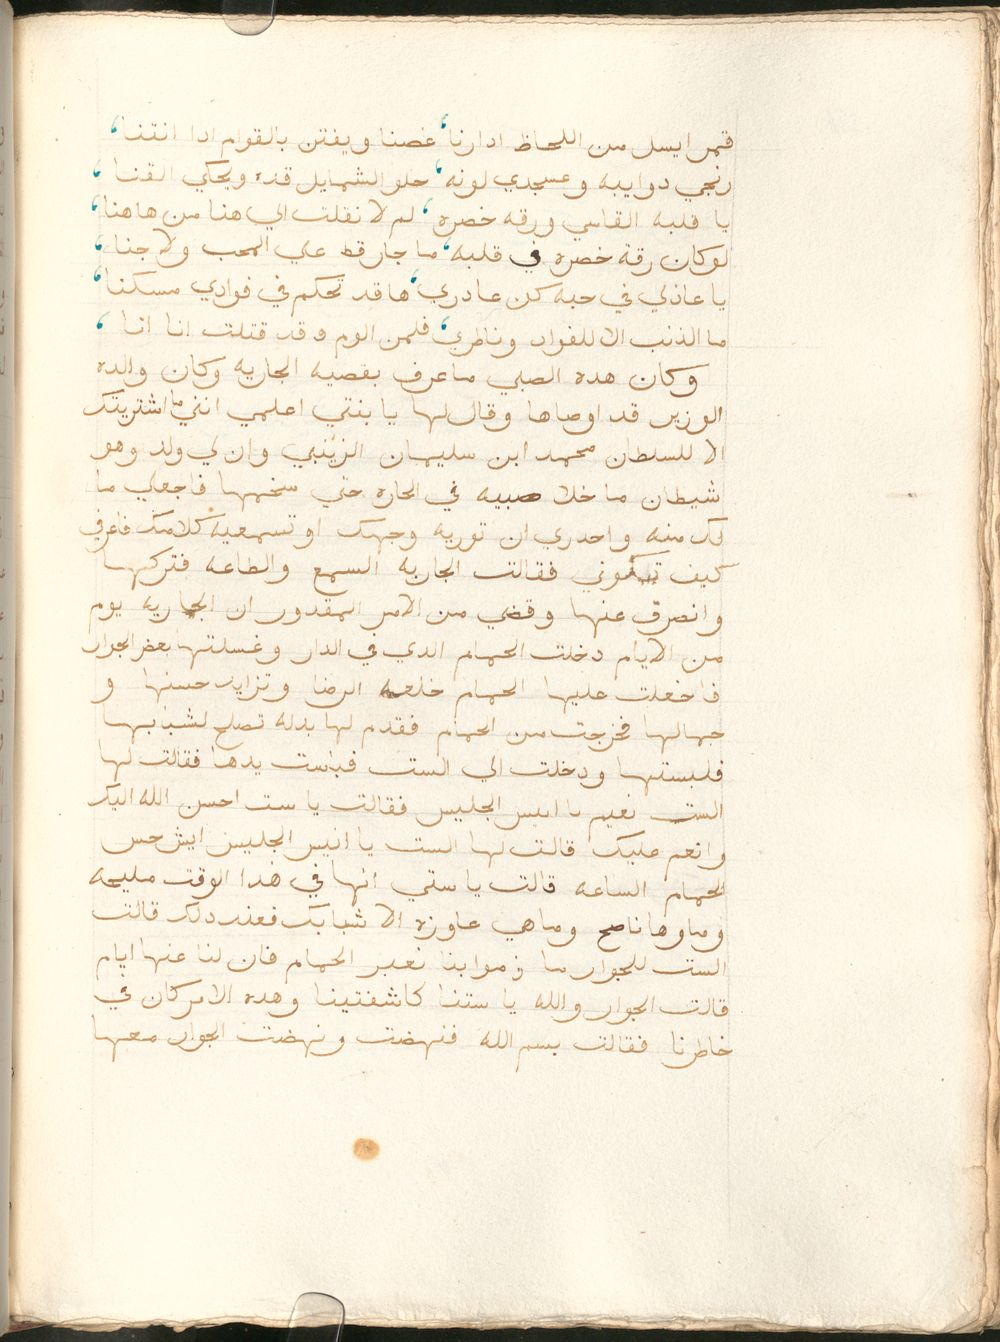 قمر ايسل من اللحاظ ادا رنا ، غصنا ويفتن بالقوام ادا انثنا ،
زنجي دوايبه وعسجدي لونه ، حلو الشمايل قده ويحكي القنا ،
يا قلبه القاسي ورقه خصره ، لم لا نقلت الي هنا من هاهنا ،
لو كان رقة خصره في قلبه ، ما جار قط علي المحب ولا جنا ،
يا عاذلي في حبه كن عادري ، ها قد تحكم في فوادي مسكنا ،
ما الذنب الا للفواد وناظري ، فلمن الوم وقد قتلت انا انا ،
وكان هده الصبي ما عرف بقصيه الجاريه وكان والده
الوزير قد اوصاها وقال لها يا بنتي اعلمي انني ما اشتريتك
الا للسلطان محمد ابن سليمان الزينبي وان لي ولد وهو
شيطان ما خلا صبيه في الحاره حتي سخمها فاجعلي ما
لك منه واحدري ان توريه وجهك او تسمعيه كلامك فاعرفي
كيف تكوني فقالت الجاريه السمع والطاعه فتركها
وانصرف عنها وقضي من الامر المقدور ان الجاريه يوم
من الايام دخلت الحمام الدي في الدار وغسلتها بعض الجوار
فاخعلت عليها الحمام خلعه الرضا وتزايد حسنها و
جمالها فخرجت من الحمام فقدم لها بدله تصلح لشبابها
فلبستها ودخلت الي الست فباست يدها فقالت لها
الست نعيم يا انيس الجليس فقالت يا ست احسن الله اليك
وانعم عليك قالت لها الست يا انيس الجليس ايش حس
الحمام الساعه قالت يا ستي انها في هدا الوقت مليحه
وماوها ناصح وما هي عاوزه الا شبابك فعند دلك قالت
الست للجوار ما قوموا بنا نعبر الحمام فان لنا عنها ايام
قالت الجوار والله يا ستنا كاشفتينا وهده الامر كان في
خاطرنا فقالت بسم الله فنهضت ونهضت الجوار معها